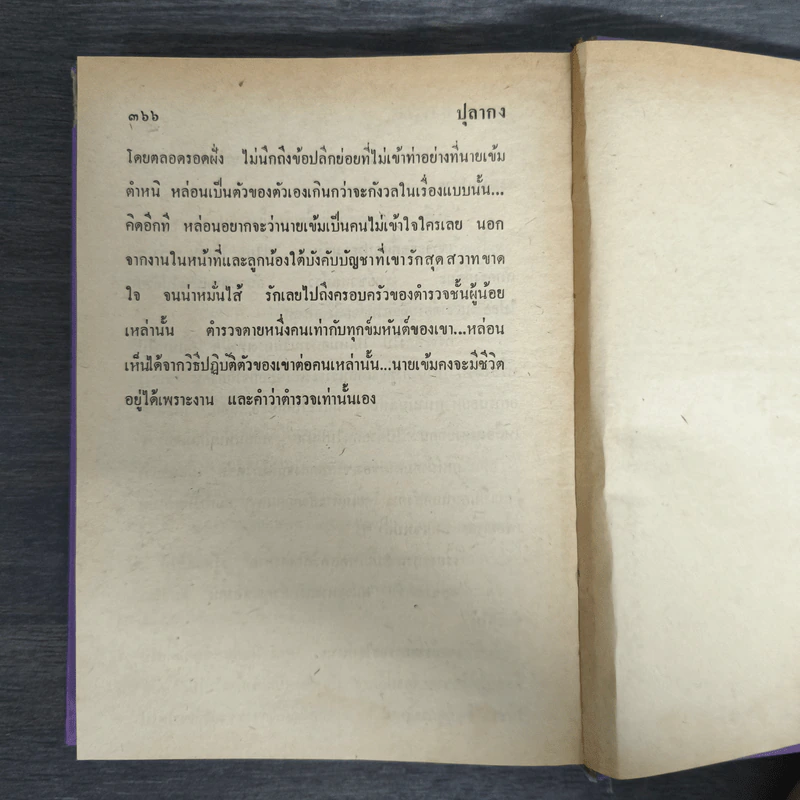 ๓๖๖ ปุลากง
โดยตลอดรอดฝั่ง ไม่นึกถึงข้อปลีกย่อยที่ไม่เข้าท่าอย่างที่นายเข้ม
ตำหนิ หล่อนเป็นตัวของตัวเองเกินกว่าจะกังวลในเรื่องแบบนั้น...
คิดอีกที หล่อนอยากจะว่านายเข้มเป็นคนไม่เข้าใจใครเลย นอก
จากงานในหน้าที่และลูกน้องใต้บังคับบัญชาที่เขารักสุดสวาทขาด
ใจ จนน่าหมั่นไส้ รักเลยไปถึงครอบครัวของตำรวจชั้นผู้น้อย
เหล่านั้น ตำรวจตายหนึ่งคนเท่ากับทุกข์มหันต์ของเขา...หล่อน
เห็นได้จากวิธีปฏิบัติตัวของเขาต่อคนเหล่านั้น...นายเข้มคงจะมีชีวิต
อยู่ได้เพราะงาน และคำว่าตำรวจเท่านั้นเอง